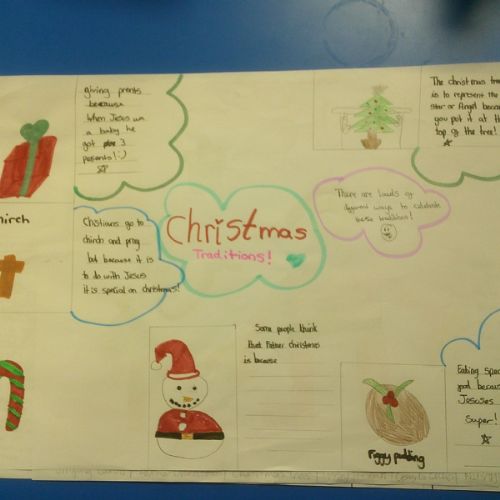 giving prents
because
When Jesus was
a baby he
got 3
presents! :-)
The christmas tree
is to represent the
star or Angel because
you put it at the
top of the tree!
There are loads of
different ways to celebrate
these traditions!
Christmas
Traditions!
hirch
Chistians go to
chirch and pray
but because it is
to do with Jesus
it is special on christmas!
Some people think
that Father christmas
is because
Eating spec
food because
Jesuses
Super!
Piggy pudding